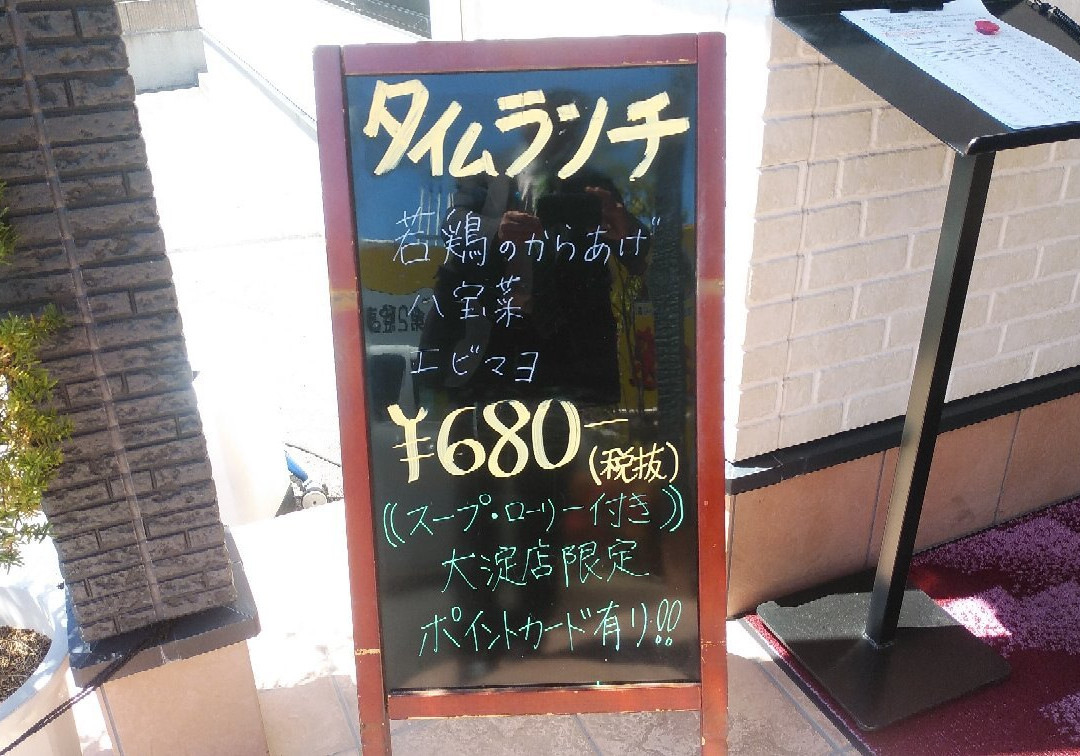 タイムランチ
若鶏のからあげ
八宝菜
エビマヨ
¥680ー
(税抜)
((スープ・ローリー付き))
大淀店限定
ポイントカード有り!!